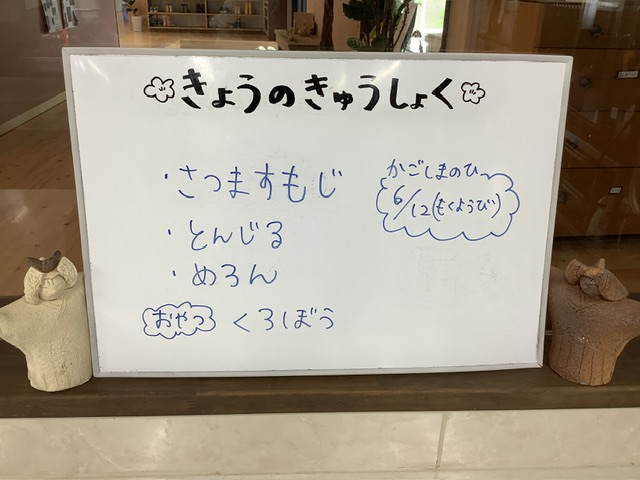 きょうのきゅうしょく
・さつますもじ
・とんじる
・めろん
おやつ くろぼう
かごしまのひ
6/12(もくようび)